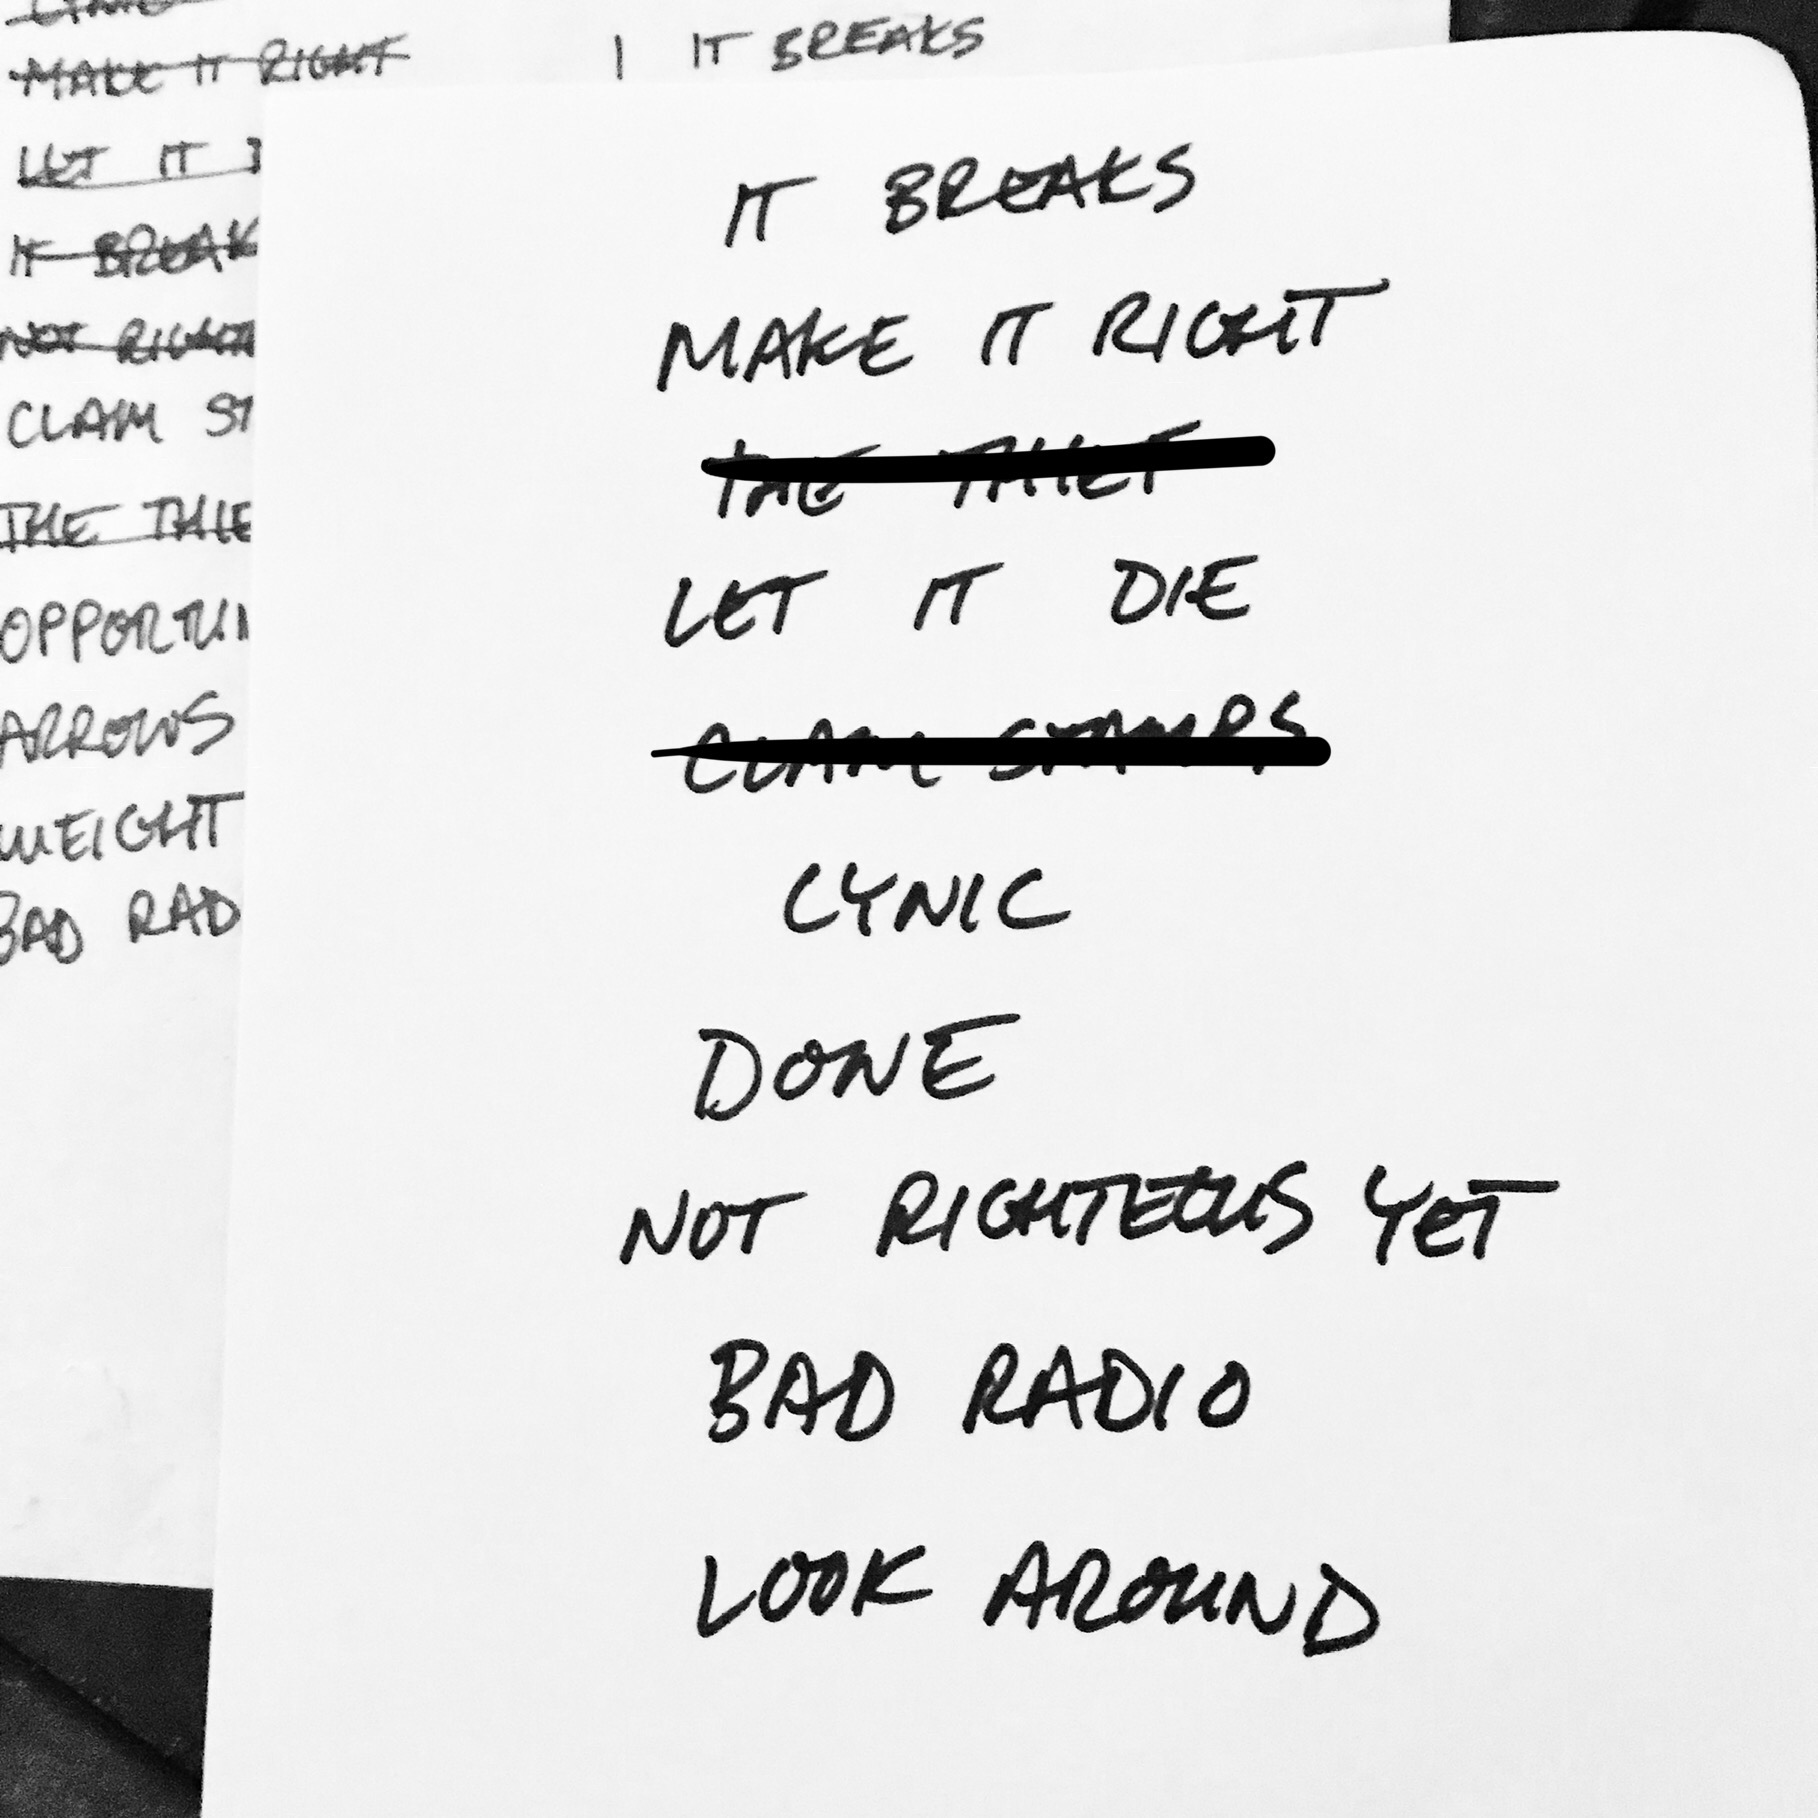 MAKE IT RIGHT
1 IT BREAKS
LET IT
IT BREAK
NOT
CLAIM ST
THE THIE
OPPORTUN
ARROWS
WEIGHT
BAD RAD
IT BREAKS
MAKE IT RIGHT
THE THIEF
LET IT DIE
CLAIM STAMPS
CYNIC
DONE
NOT RIGHTEOUS YET
BAD RADIO
LOOK AROUND